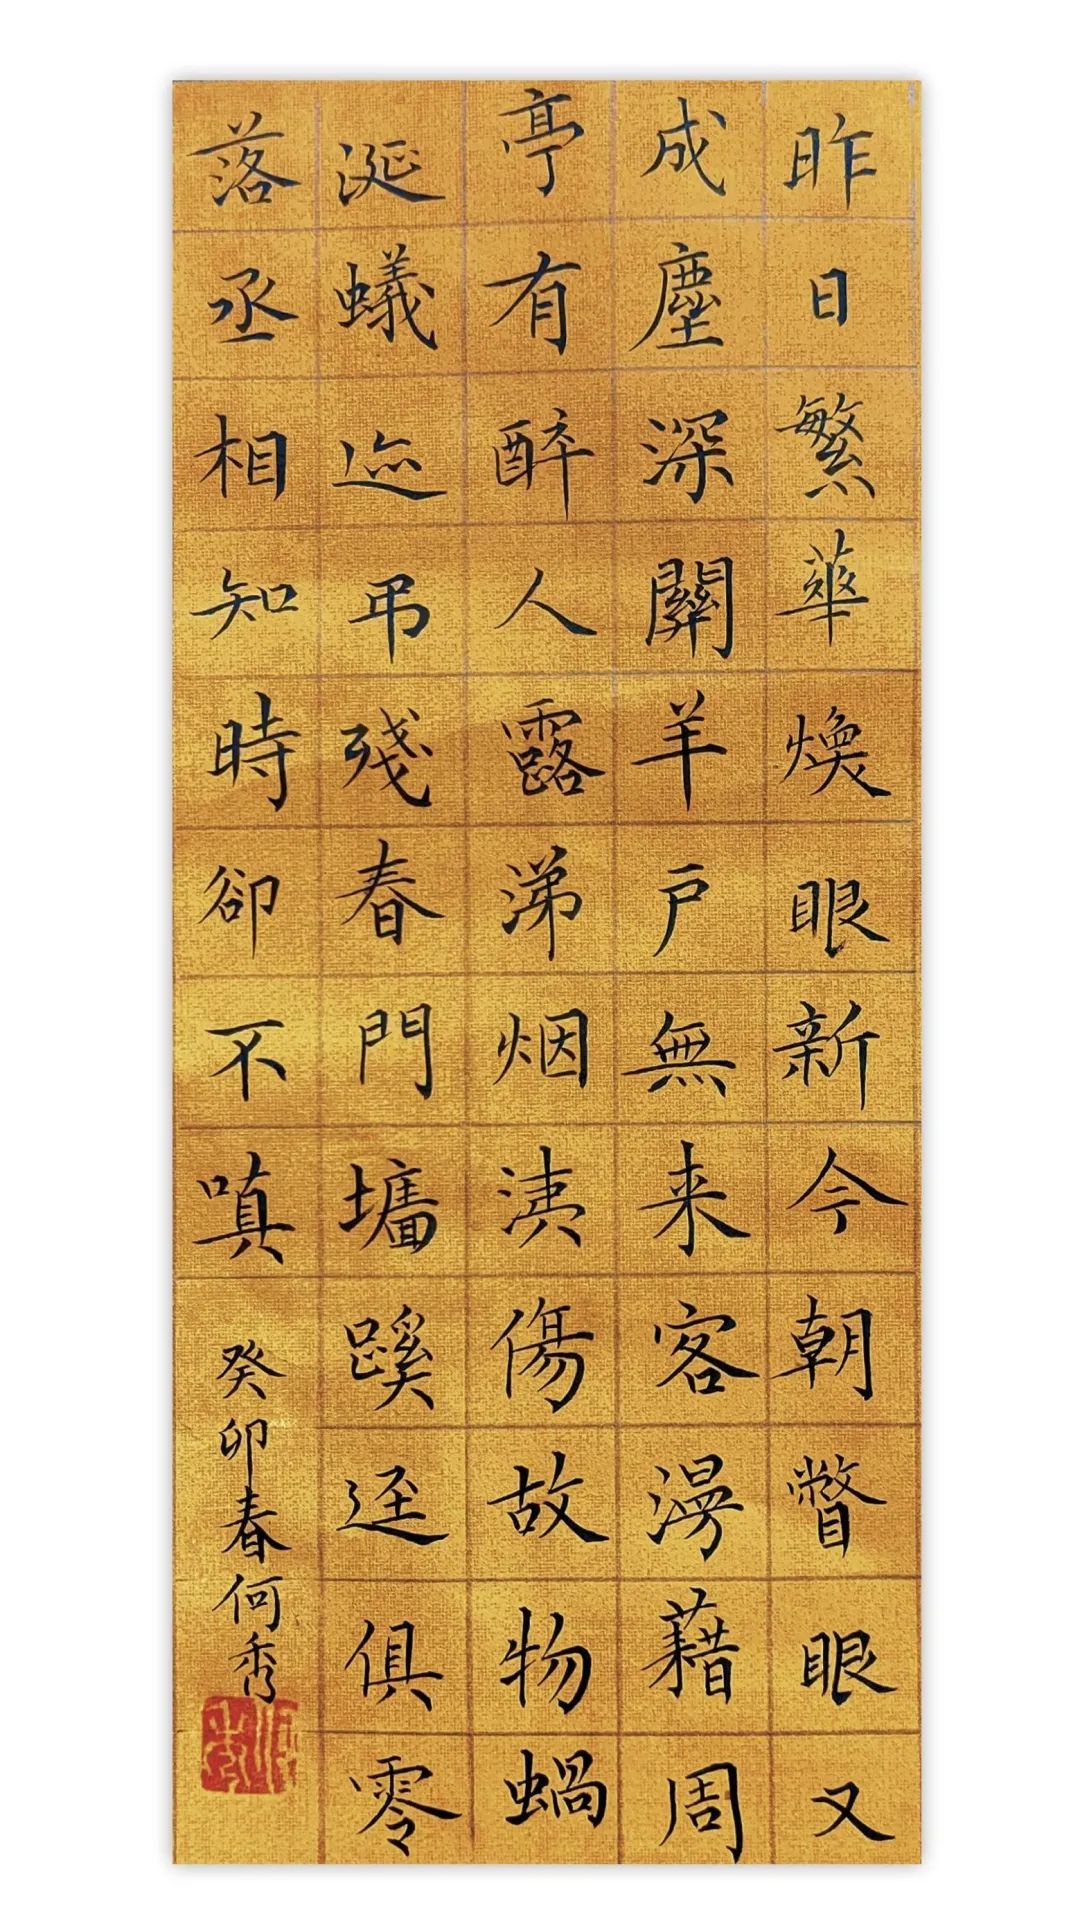 昨日繁華煥眼新今朝瞥眼又
成塵深關羊戶無来客漫藉周
亭有醉人露涕烟洟傷故物蝸
涎蟻迹弔殘春門墻蹊逕俱零
落丞相知時卻不嗔
癸卯春何秀